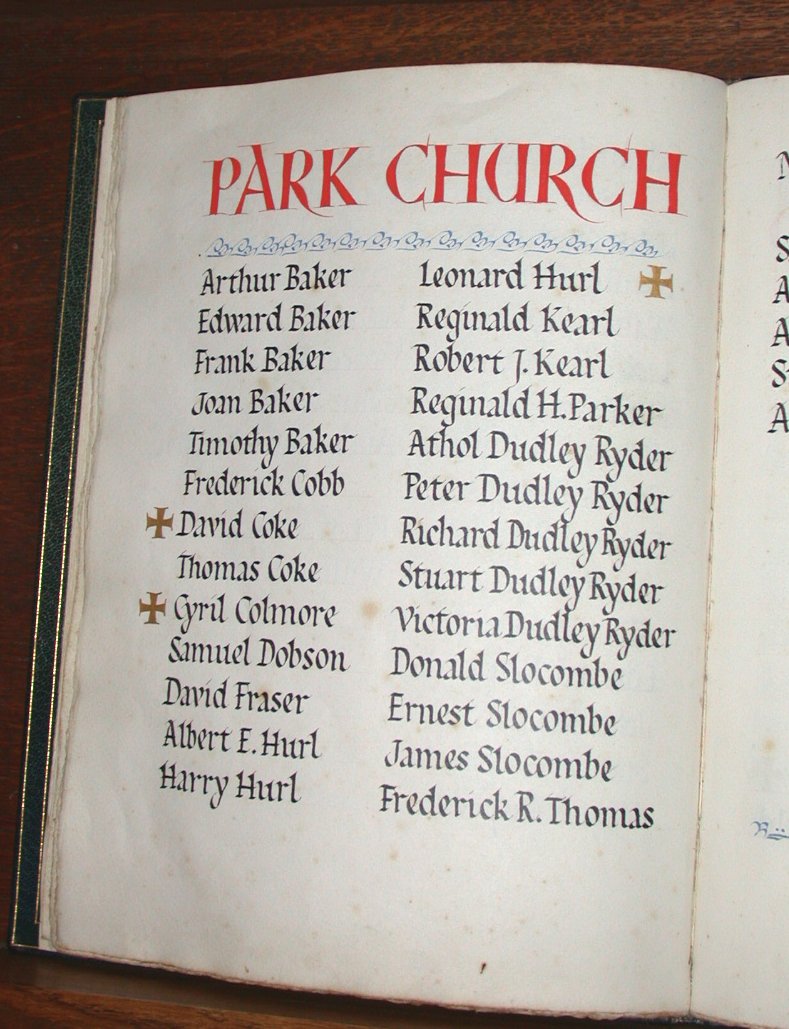 PARK CHURCH
Arthur Baker
Edward Baker
Frank Baker
Joan Baker
Timothy Baker
Frederick Cobb
David Coke
Thomas Coke
Cyril Colmore
Samuel Dobson
David Fraser
Albert E. Hurl
Harry Hurl
Leonard Hurl
Reginald Kearl
Robert J. Kearl
Reginald H. Parker
Athol Dudley Ryder
Peter Dudley Ryder
Richard Dudley Ryder
Stuart Dudley Ryder
Victoria Dudley Ryder
Donald Slocombe
Ernest Slocombe
James Slocombe
Frederick R. Thomas